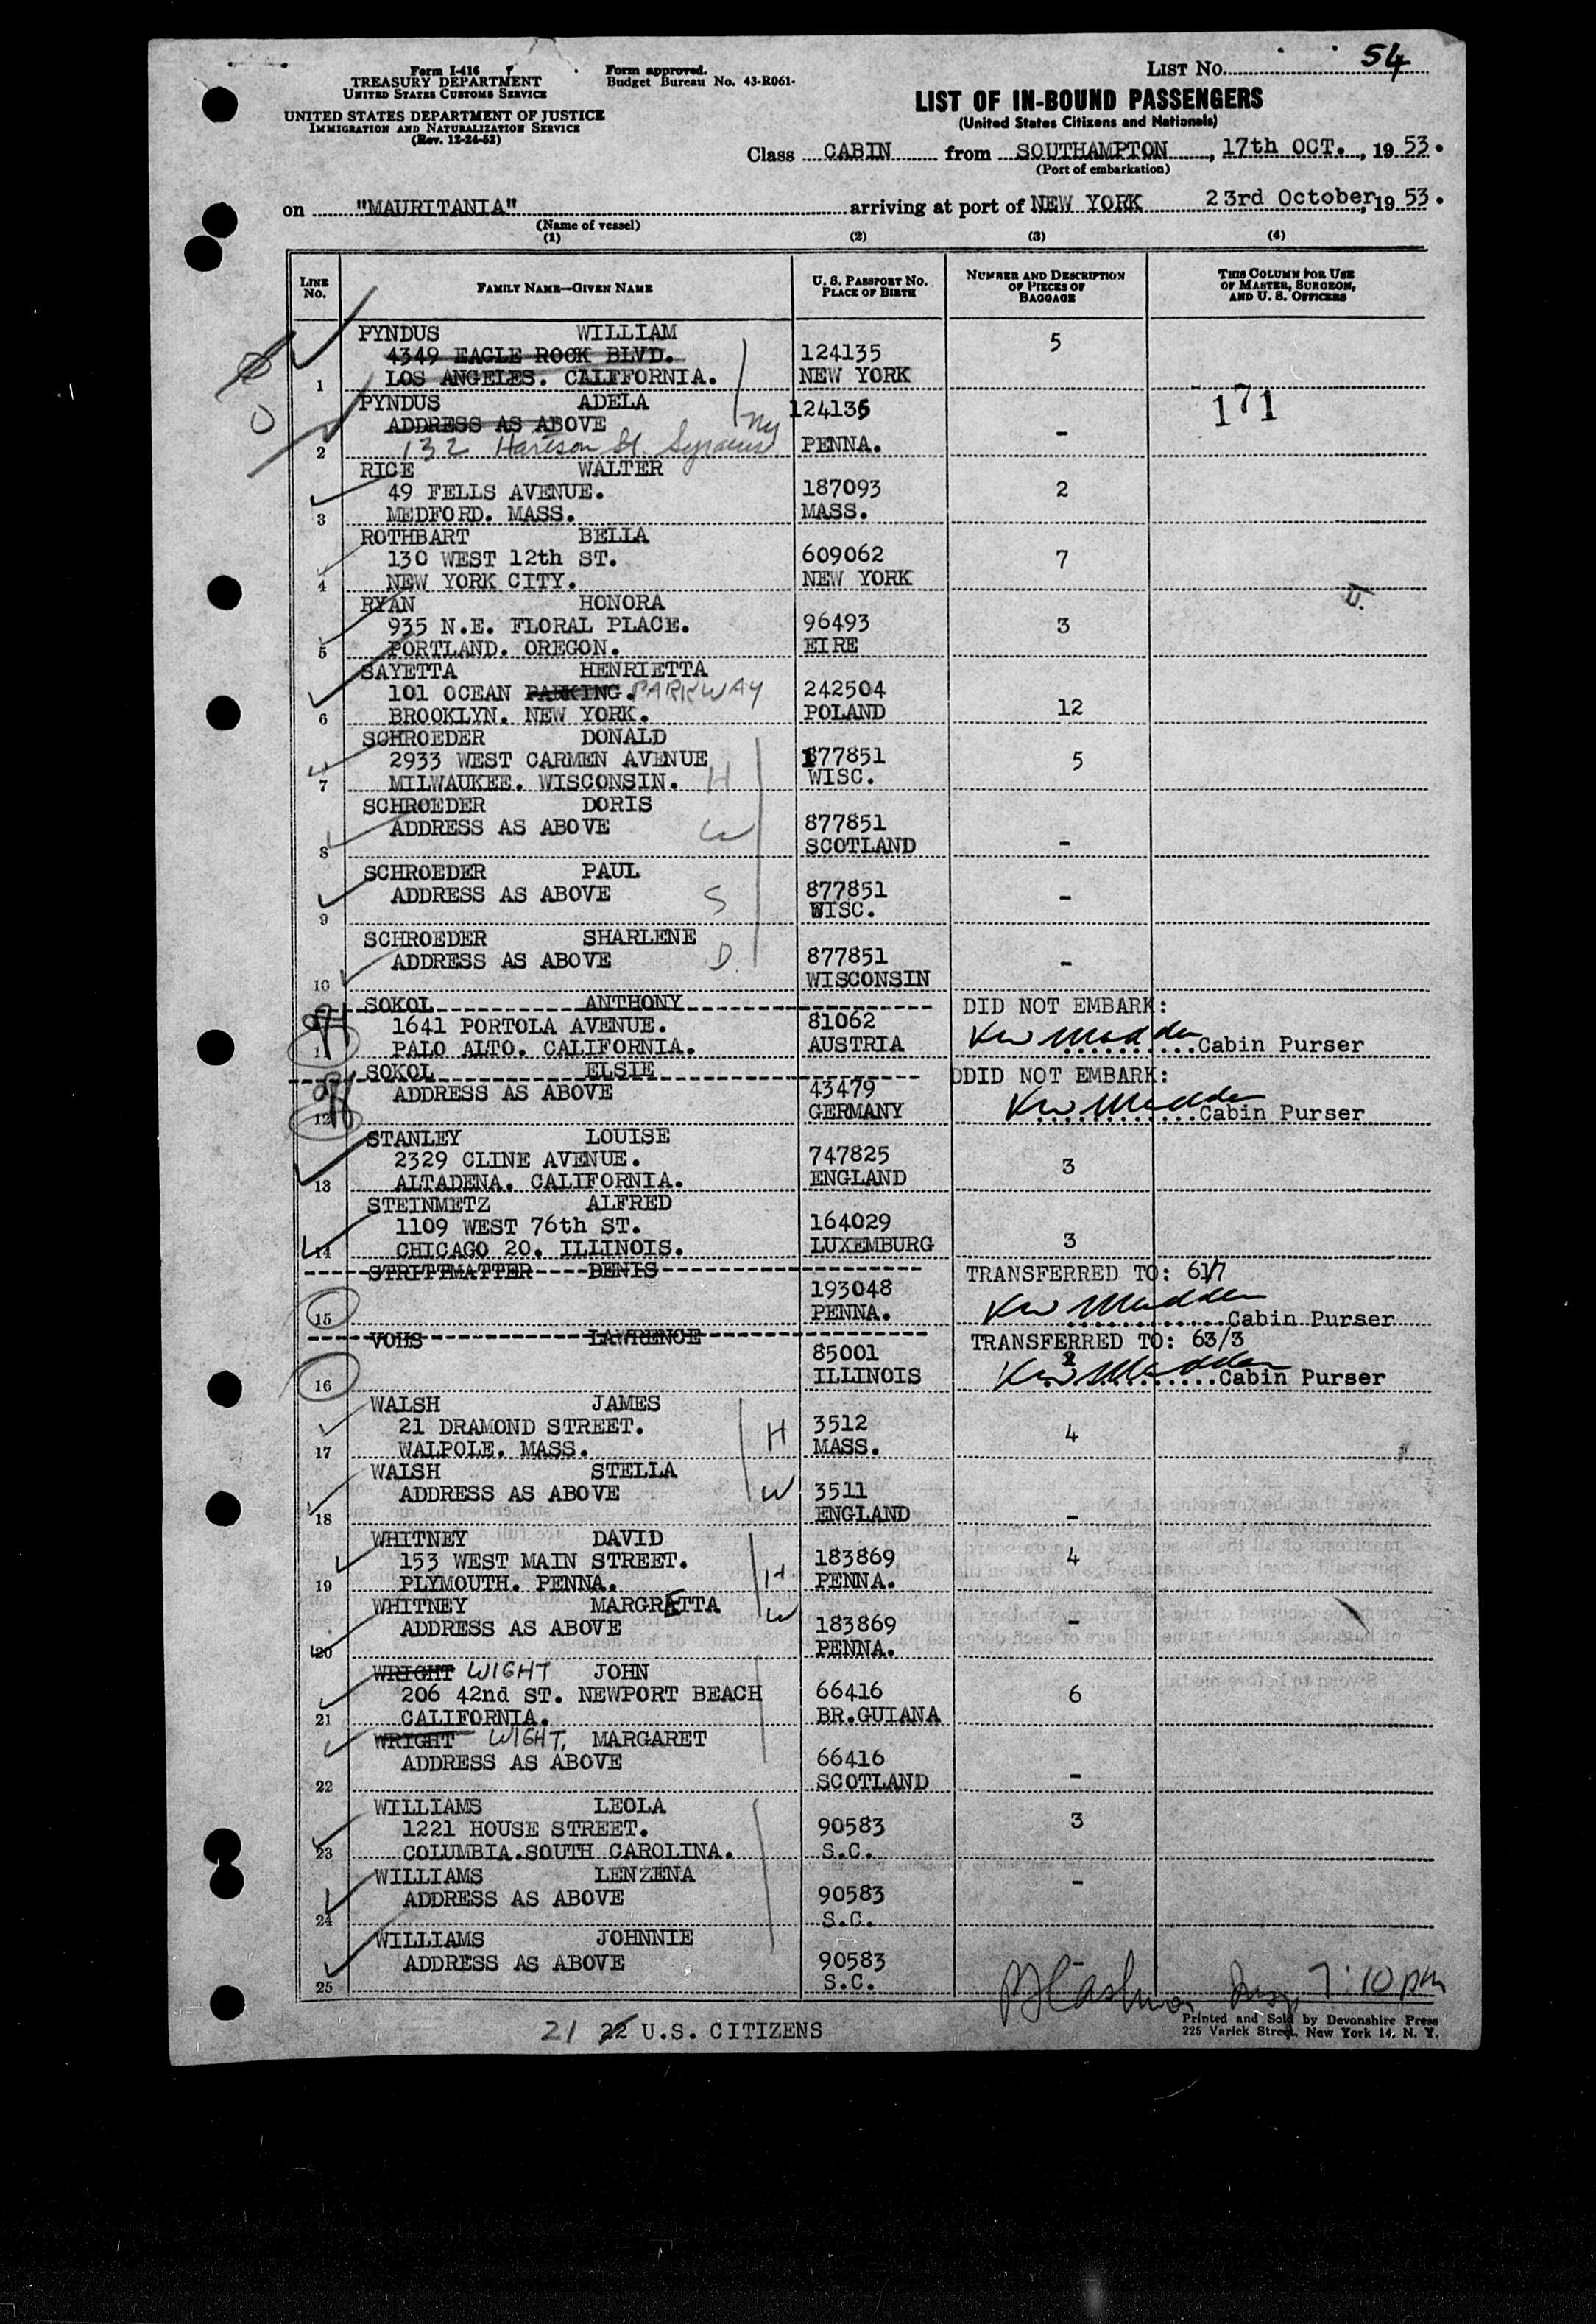 Form I-416
TREASURY DEPARTMENT
UNITED STATES CUSTOMS SERVICE
UNITED STATES DEPARTMENT OF JUSTICE
IMMIGRATION AND NATURALIZATION SERVICE
(Rev. 12-24-52)
Form approved.
Budget Bureau No. 43-R061-
LIST No. 54
LIST OF IN-BOUND PASSENGERS
(United States Citizens and Nationals)
Class CABIN from SOUTHAMPTON, 17th OCT., 19 53.
(Port of embarkation)
on "MAURITANIA" arriving at port of NEW YORK 23rd October, 19 53.
(Name of vessel)
(1) (2) (3) (4)
LINE No. FAMILY NAME—GIVEN NAME U. S. PASSPORT NO. PLACE OF BIRTH NUMBER AND DESCRIPTION OF PIECES OF BAGGAGE THIS COLUMN FOR USE OF MASTER, SURGEON, AND U. S. OFFICERS
PYNDUS WILLIAM 5
4349 EAGLE ROCK BLVD. 124135
1 LOS ANGELES. CALIFORNIA. NEW YORK
PYNDUS ADELA 124135 171
ADDRESS AS ABOVE NY -
2 132 Harison St. Syracuse PENNA.
RICE WALTER
49 FELLS AVENUE. 187093 2
3 MEDFORD. MASS. MASS.
ROTHBART BELLA
130 WEST 12th ST. 609062 7
4 NEW YORK CITY. NEW YORK
RYAN HONORA
935 N.E. FLORAL PLACE. 96493 3
5 PORTLAND. OREGON. EIRE
SAYETTA HENRIETTA
101 OCEAN PARKING. PARKWAY 242504
6 BROOKLYN. NEW YORK. POLAND 12
SCHROEDER DONALD
2933 WEST CARMEN AVENUE 877851 5
7 MILWAUKEE. WISCONSIN. H WISC.
SCHROEDER DORIS
ADDRESS AS ABOVE W 877851
8 SCOTLAND -
SCHROEDER PAUL
ADDRESS AS ABOVE S 877851 -
9 WISC.
SCHROEDER SHARLENE
ADDRESS AS ABOVE D. 877851 -
10 WISCONSIN
SOKOL ANTHONY DID NOT EMBARK:
1641 PORTOLA AVENUE. 81062
11 PALO ALTO. CALIFORNIA. AUSTRIA KW Madden Cabin Purser
SOKOL ELSIE DDID NOT EMBARK:
ADDRESS AS ABOVE 43479
12 GERMANY KW Madden Cabin Purser
STANLEY LOUISE
2329 CLINE AVENUE. 747825 3
13 ALTADENA. CALIFORNIA. ENGLAND
STEINMETZ ALFRED
1109 WEST 76th ST. 164029
14 CHICAGO 20. ILLINOIS. LUXEMBURG 3
STRITTMATTER DENIS TRANSFERRED TO: 61/7
193048
15 PENNA. KW Madden Cabin Purser
VOHS LAWRENCE TRANSFERRED TO: 63/3
85001
16 ILLINOIS KW Madden Cabin Purser
WALSH JAMES
21 DRAMOND STREET. H 3512 4
17 WALPOLE. MASS. MASS.
WALSH STELLA
ADDRESS AS ABOVE W 3511
18 ENGLAND -
WHITNEY DAVID
153 WEST MAIN STREET. 183869 4
19 PLYMOUTH. PENNA. H. PENNA.
WHITNEY MARGRETTA W
ADDRESS AS ABOVE 183869 -
20 PENNA.
WRIGHT WIGHT JOHN
206 42nd ST. NEWPORT BEACH 66416 6
21 CALIFORNIA. BR.GUIANA
WRIGHT WIGHT, MARGARET
ADDRESS AS ABOVE 66416
22 SCOTLAND -
WILLIAMS LEOLA
1221 HOUSE STREET. 90583 3
23 COLUMBIA.SOUTH CAROLINA. S.C.
WILLIAMS LENZENA -
ADDRESS AS ABOVE 90583
24 S.C.
WILLIAMS JOHNNIE
ADDRESS AS ABOVE 90583 -
25 S.C.
7:10 pm
21 22 U.S. CITIZENS
Printed and Sold by Devonshire Press
225 Varick Street, New York 14, N. Y.